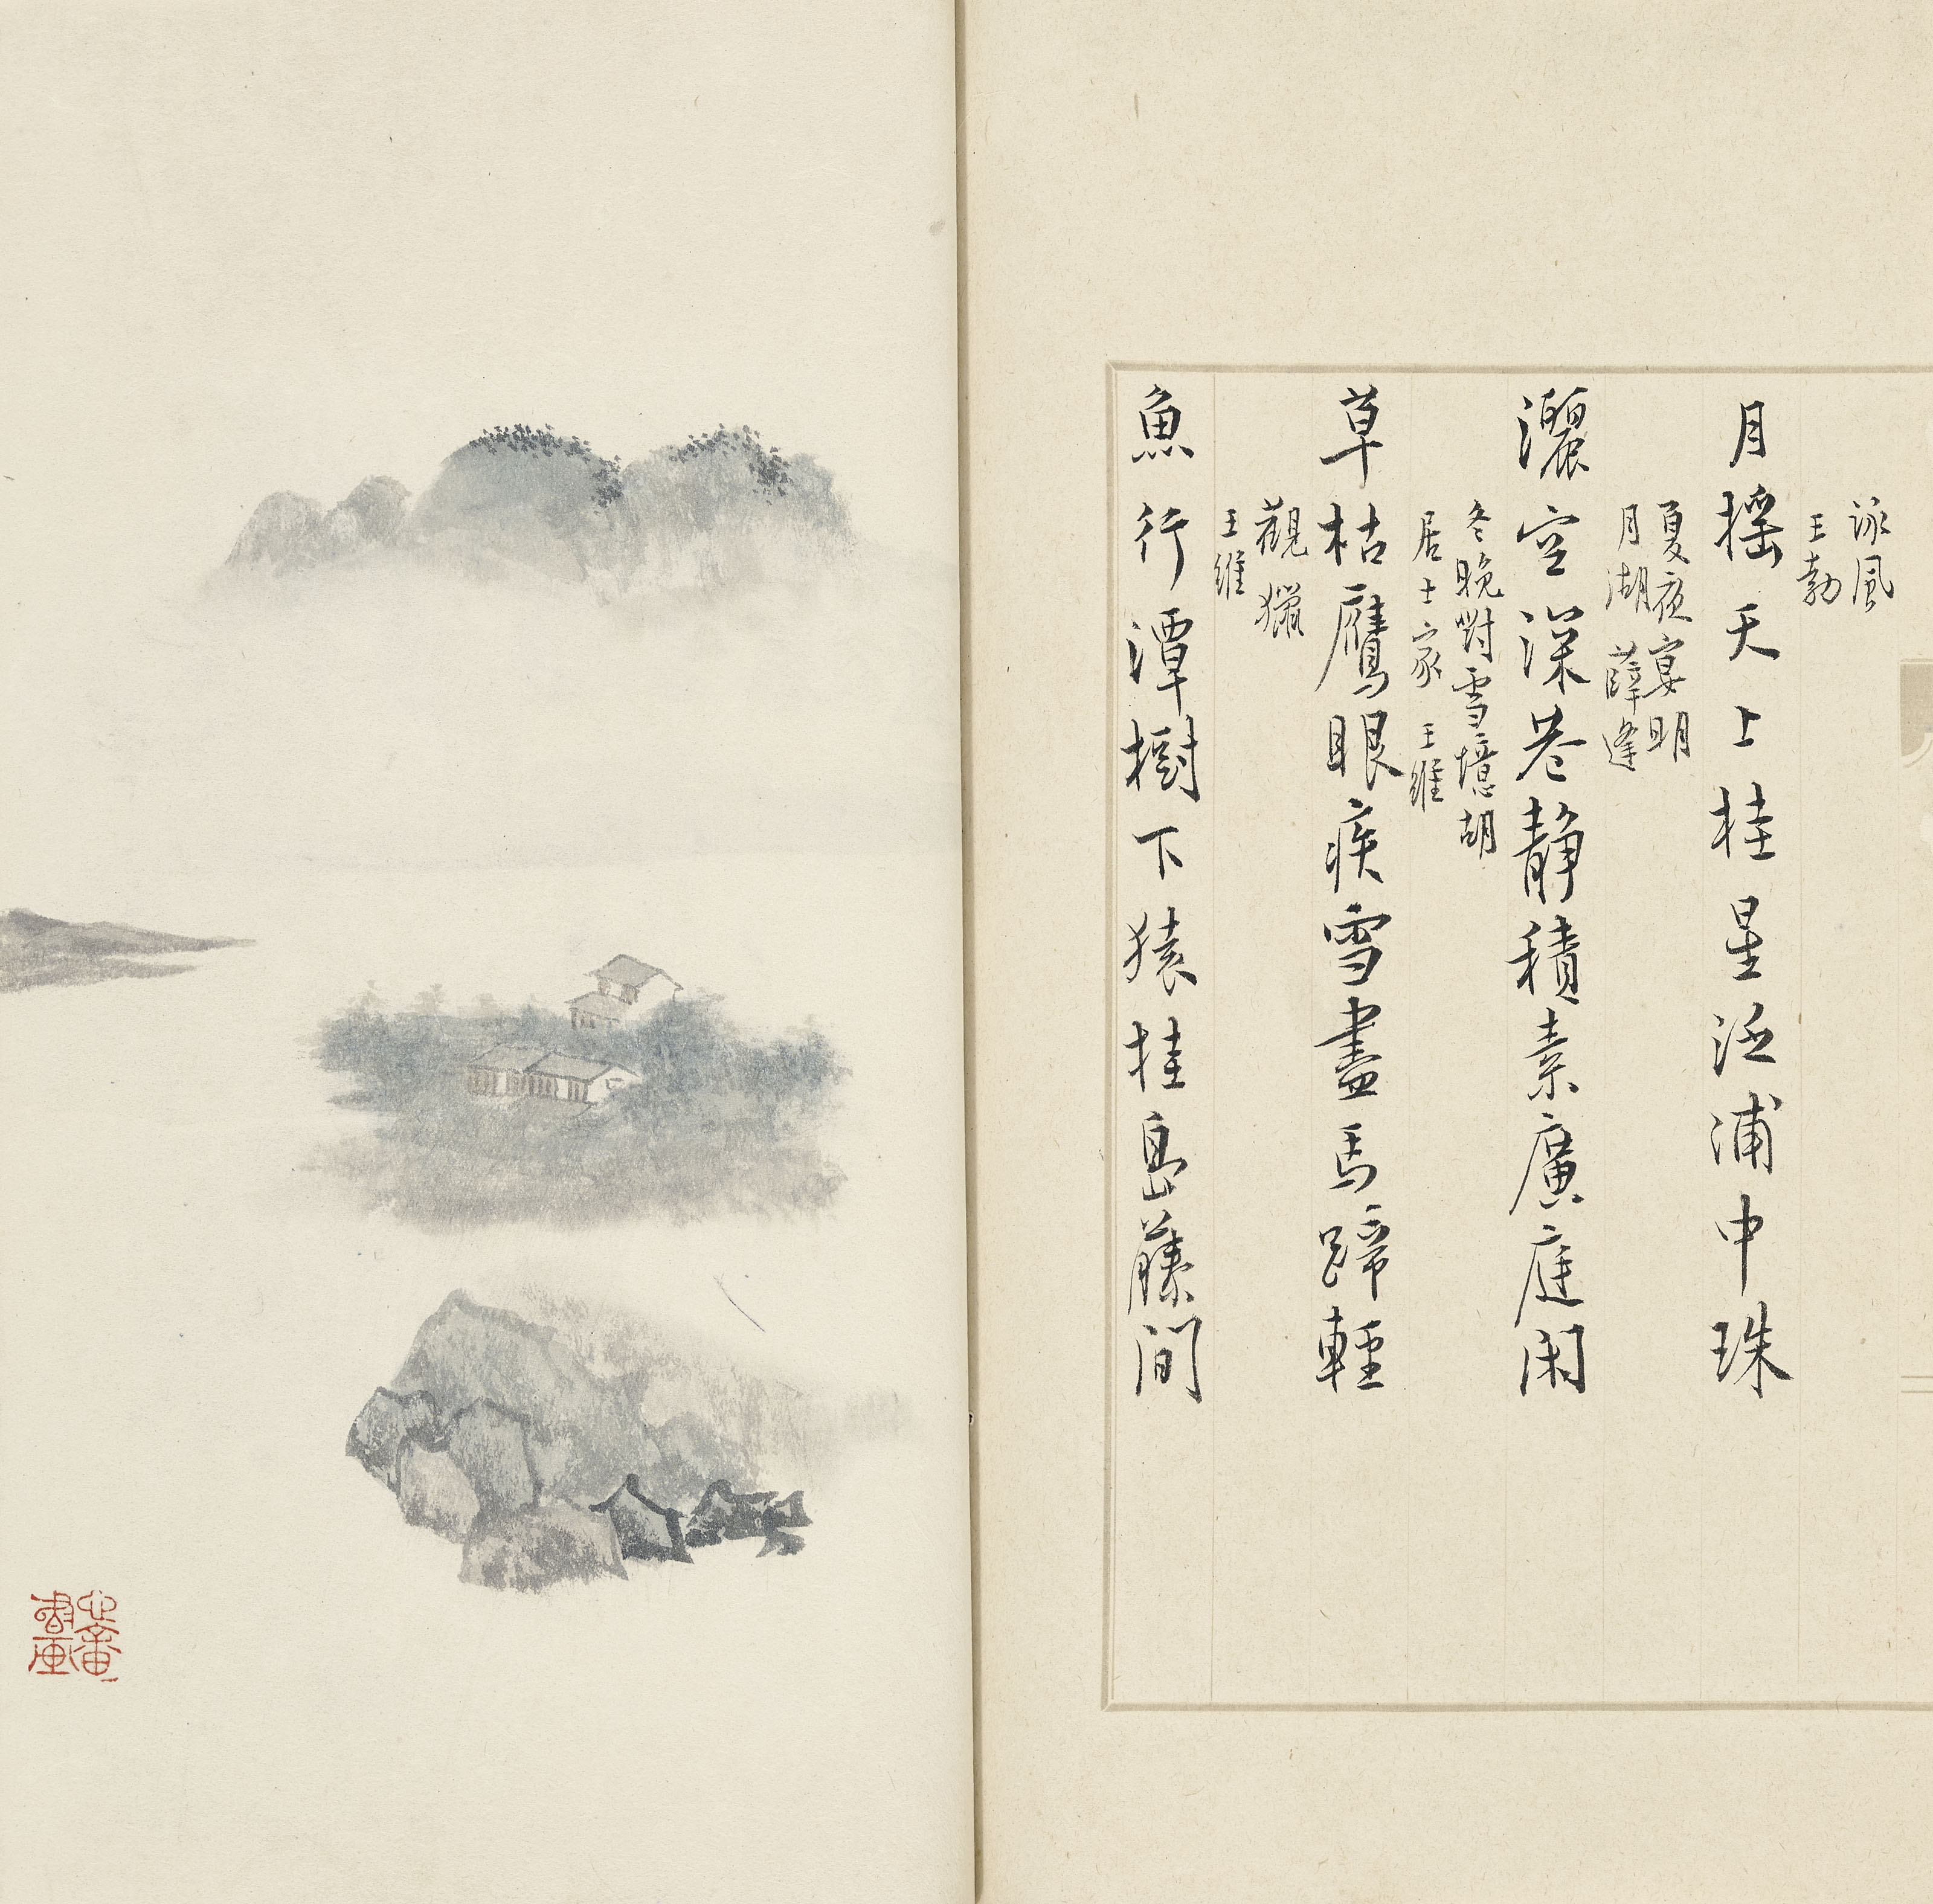 詠風
王勃
月搖天上桂星泛浦中珠
夏夜宴明
月湖 薛逢
灑空深巷靜積素廣庭閑
冬晚對雪憶胡
居士家 王維
草枯鷹眼疾雪盡馬蹄輕
觀獵
王維
魚行潭樹下猿挂島藤間
心畬
書畫